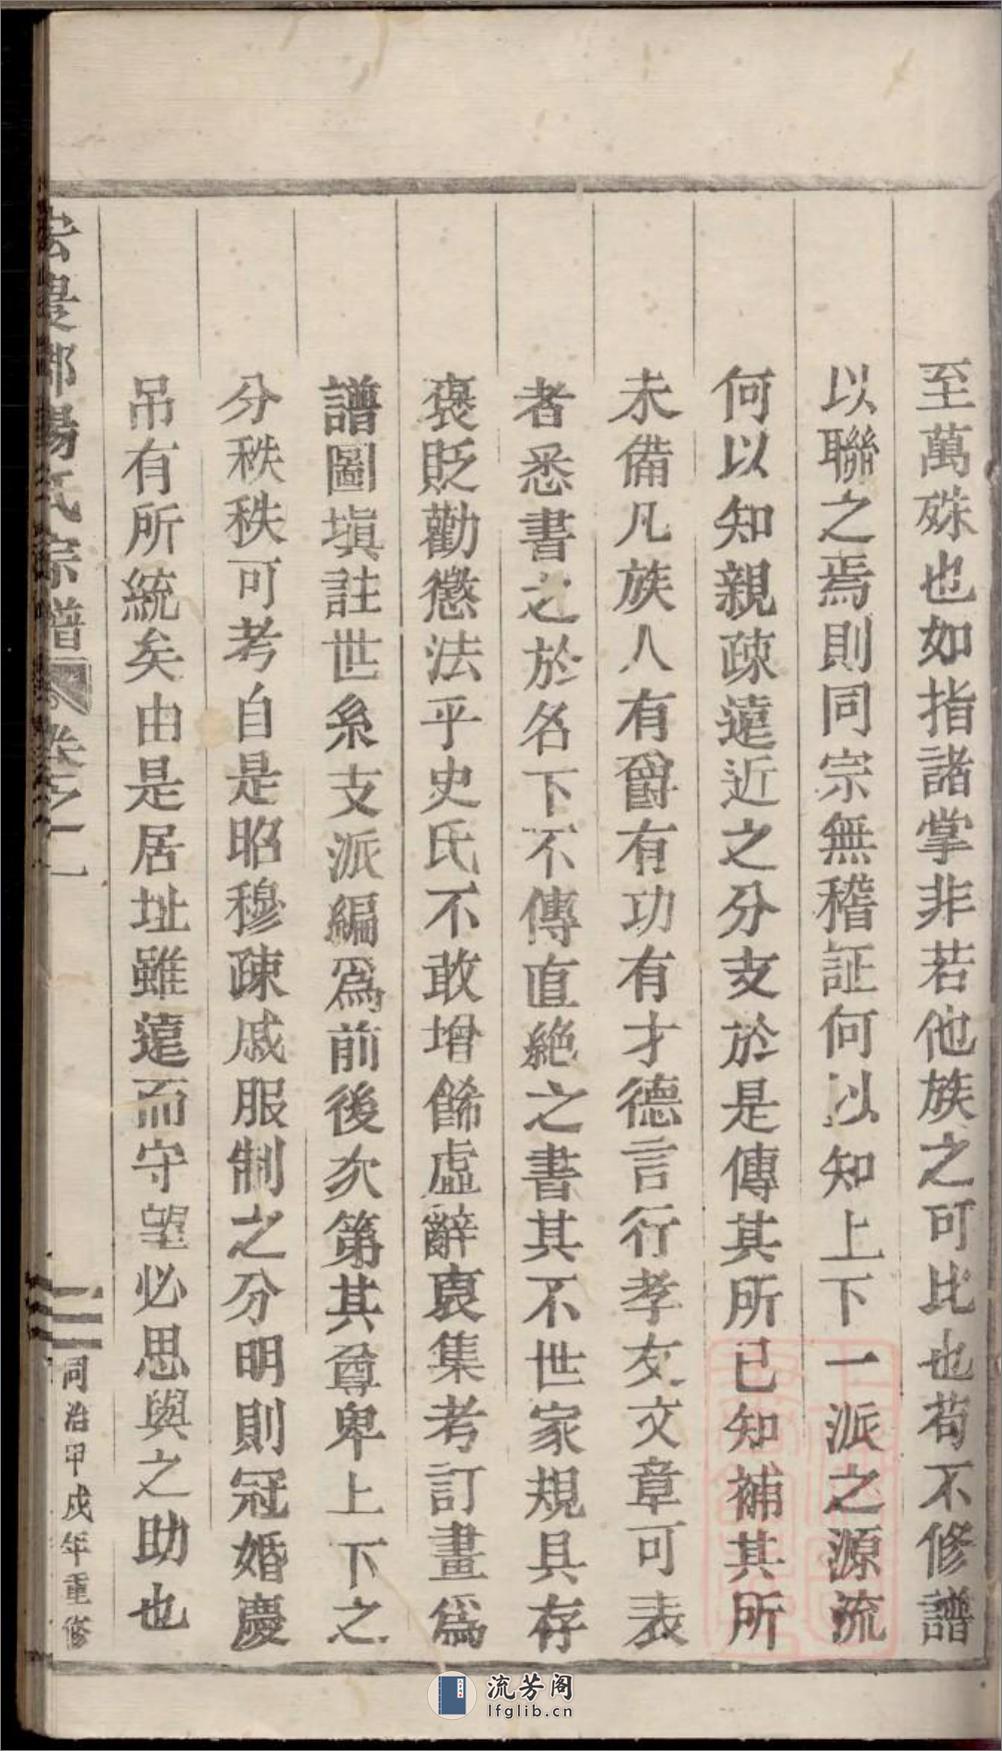 至萬殊也如指諸掌非若他族之可比也苟不修譜
以聯之焉則同宗無稽証何以知上下一派之源流
何以知親疎遠近之分支於是傳其所已知補其所
未備凡族人有爵有功有才德言行孝友文章可表
者悉書之於名下不傳直絶之書其不世家規具存
褒貶勸懲法乎史氏不敢增餙虛辭裒集考訂畫爲
譜圖塡註世系支派編爲前後次第其尊卑上下之
分秩秩可考自是昭穆疎戚服制之分明則冠婚慶
吊有所統矣由是居址雖遠而守望必思與之助也
氏宗譜 卷之一
二 同治甲戌年重修
流芳阁
lfglib.cn